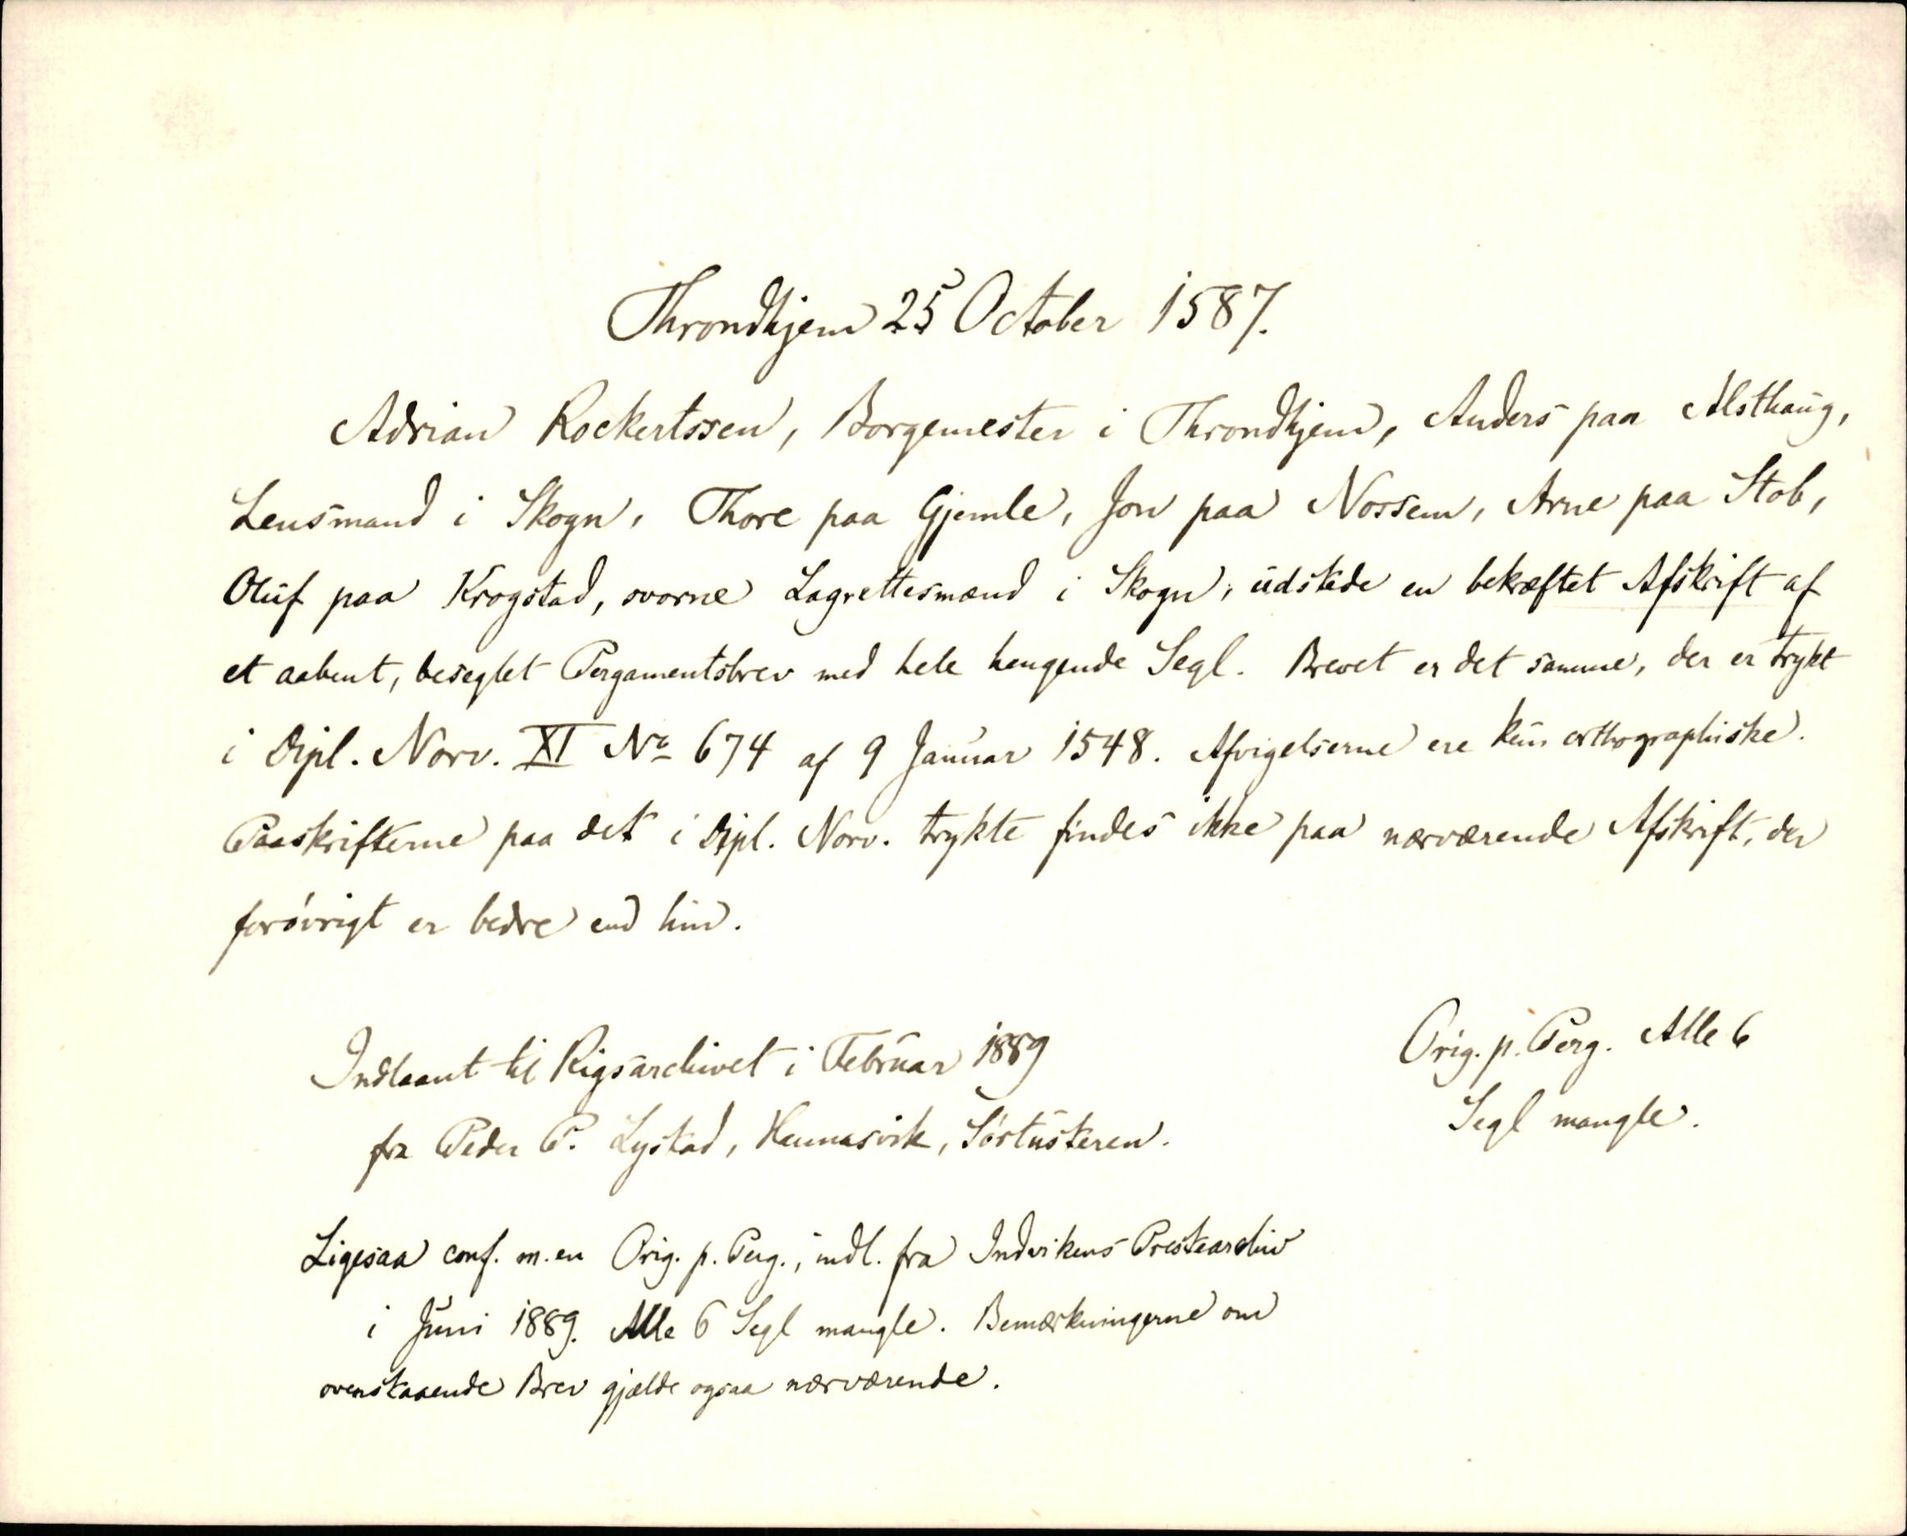 Throndhjem 25 October 1587.
Adrian Rockertssen, Borgemester i Throndhjem, Anders paa Alsthaug,
Lensmand i Skogn, Thore paa Gjemle, Jon paa Nossem, Arne paa Stob,
Oluf paa Krogstad, svorne Lagrettesmænd i Skogn, udstede en bekræftet Afskrift af
et aabent, beseglet Pergamentsbrev med hele hengende Segl. Brevet er det samme, der er trykt
i Dipl. Norv. XI No 674 af 9 Januar 1548. Afvigelserne ere kun orthographiske.
Paaskrifterne paa det i Dipl. Norv. trykte findes ikke paa nærværende Afskrift, der
forøvrigt er bedre end hin.
Indlaant til Rigsarchivet i Februar 1889
fra Peder P. Lystad, Hennasvik,
Orig. p. Perg. Alle 6
Segl mangle.
Ligesaa conf. m. en Orig. p. Perg., indl. fra Indvikens Prestearchiv
i Juni 1889. Alle 6 Segl mangle. Bemærkningerne om
ovenstaaende Brev gjælde ogsaa nærværende.